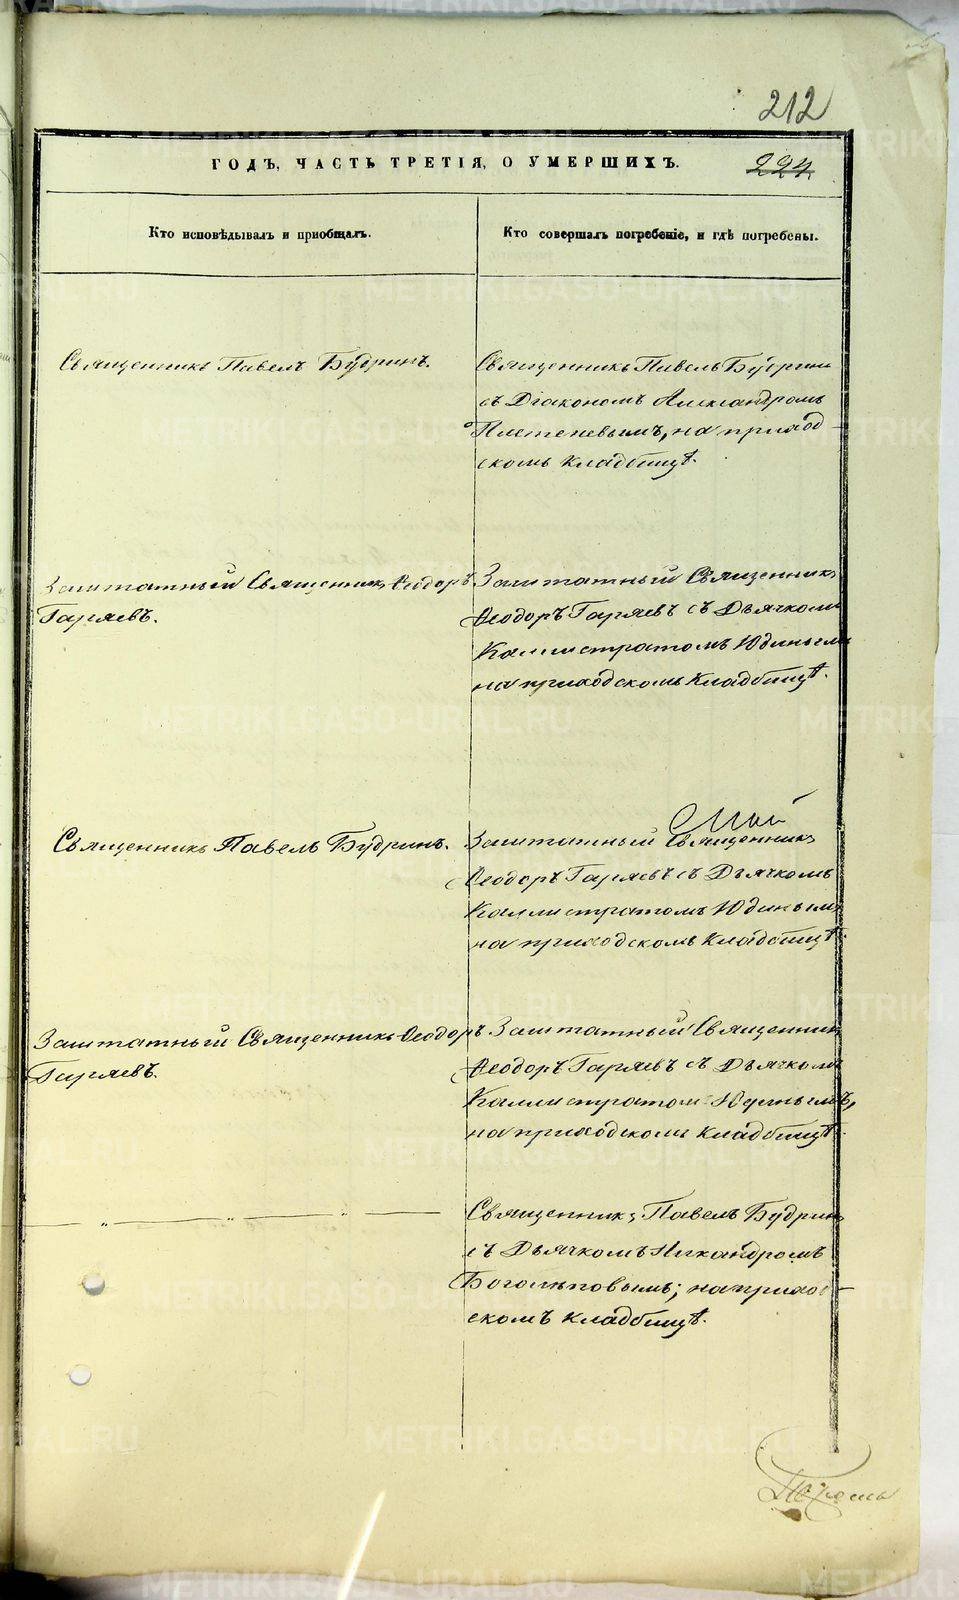 212
ГОДЪ, ЧАСТЬ ТРЕТІЯ, О УМЕРШИХЪ.
224.
Кто исповѣдывалъ и приобщалъ.
Кто совершалъ погребеніе, и гдѣ погребены.
Священникъ Павелъ Будринъ.
Священникъ Павелъ Будринъ
съ Діакономъ Александромъ
на приход-
скомъ кладбищѣ.
Заштатный Священникъ Ѳеодоръ
Гаряевъ.
Заштатный Священникъ
Ѳеодоръ Гаряевъ съ Дьячкомъ
Каллистратомъ Юдинымъ
на приходскомъ кладбищѣ.
Май
Священникъ Павелъ Будринъ.
Заштатный Священникъ
Ѳеодоръ Гаряевъ съ Дьячкомъ
Каллистратомъ Юдинымъ
на приходскомъ кладбищѣ.
Заштатный Священникъ Ѳеодоръ
Гаряевъ.
Заштатный Священникъ
Ѳеодоръ Гаряевъ съ Дьячкомъ
Каллистратомъ Юдинымъ,
на приходскомъ кладбищѣ.
Священникъ Павелъ Будринъ
съ Дьячкомъ Никандромъ
Боголѣповымъ; на приход-
скомъ кладбищѣ.
METRIKI.GASO-URAL.RU